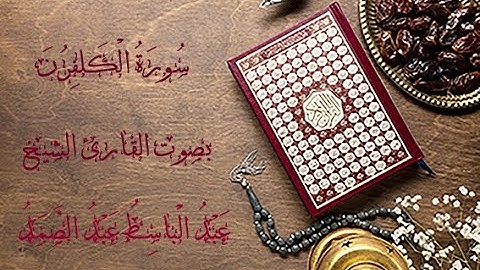 سُورَةُ الْكَٰفِرُونَ
بصوت القارئ الشيخ
عَبْدُ الْبَاسِطِ عَبْدُ الصَّمَدِ